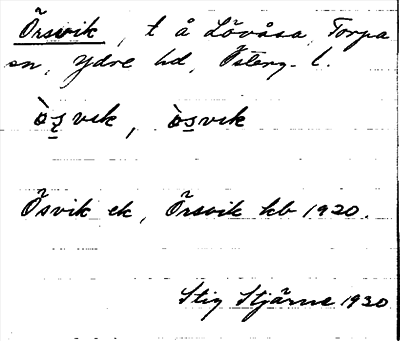 Örsvik, t å Lövåsa, Torpa
sn, Ydre hd, Österg. l.
òs̠vik, òs̠vik
Ösvik ek, Örsvik kb 1920.
Stig Stjärne 1930